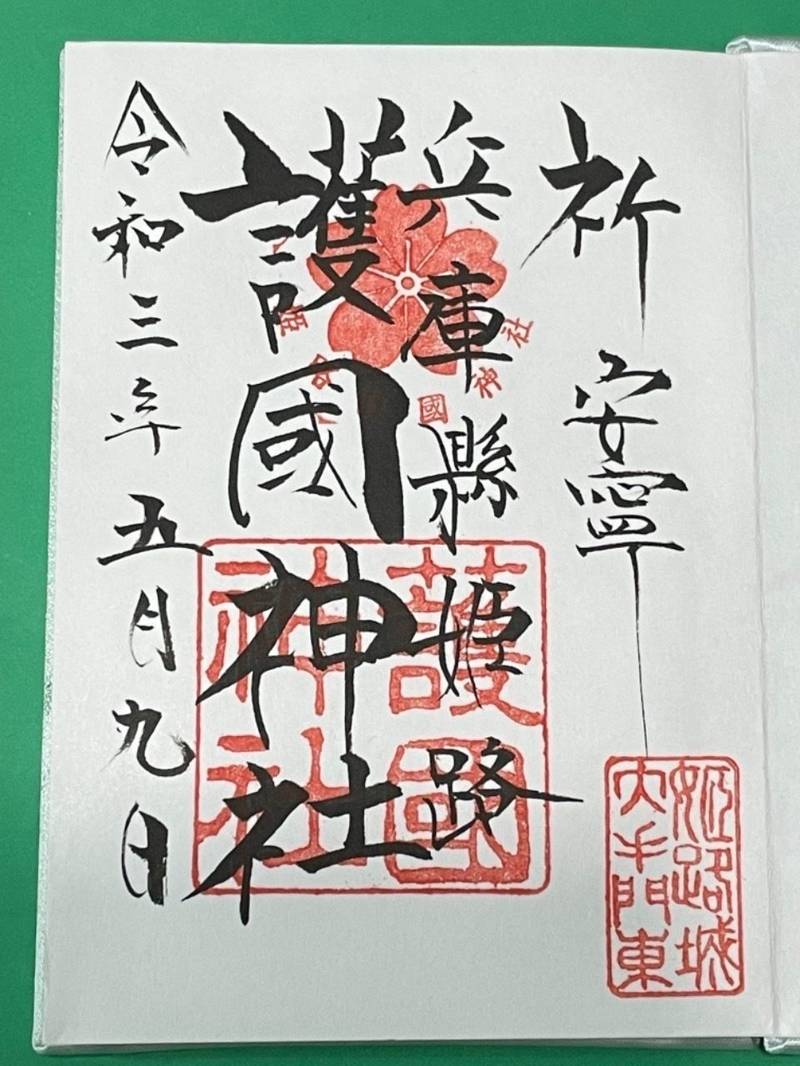 祈安寧
兵庫縣姫路
護國神社
令和三年五月九日
護國
神社
姫路城
大手門東
國神社